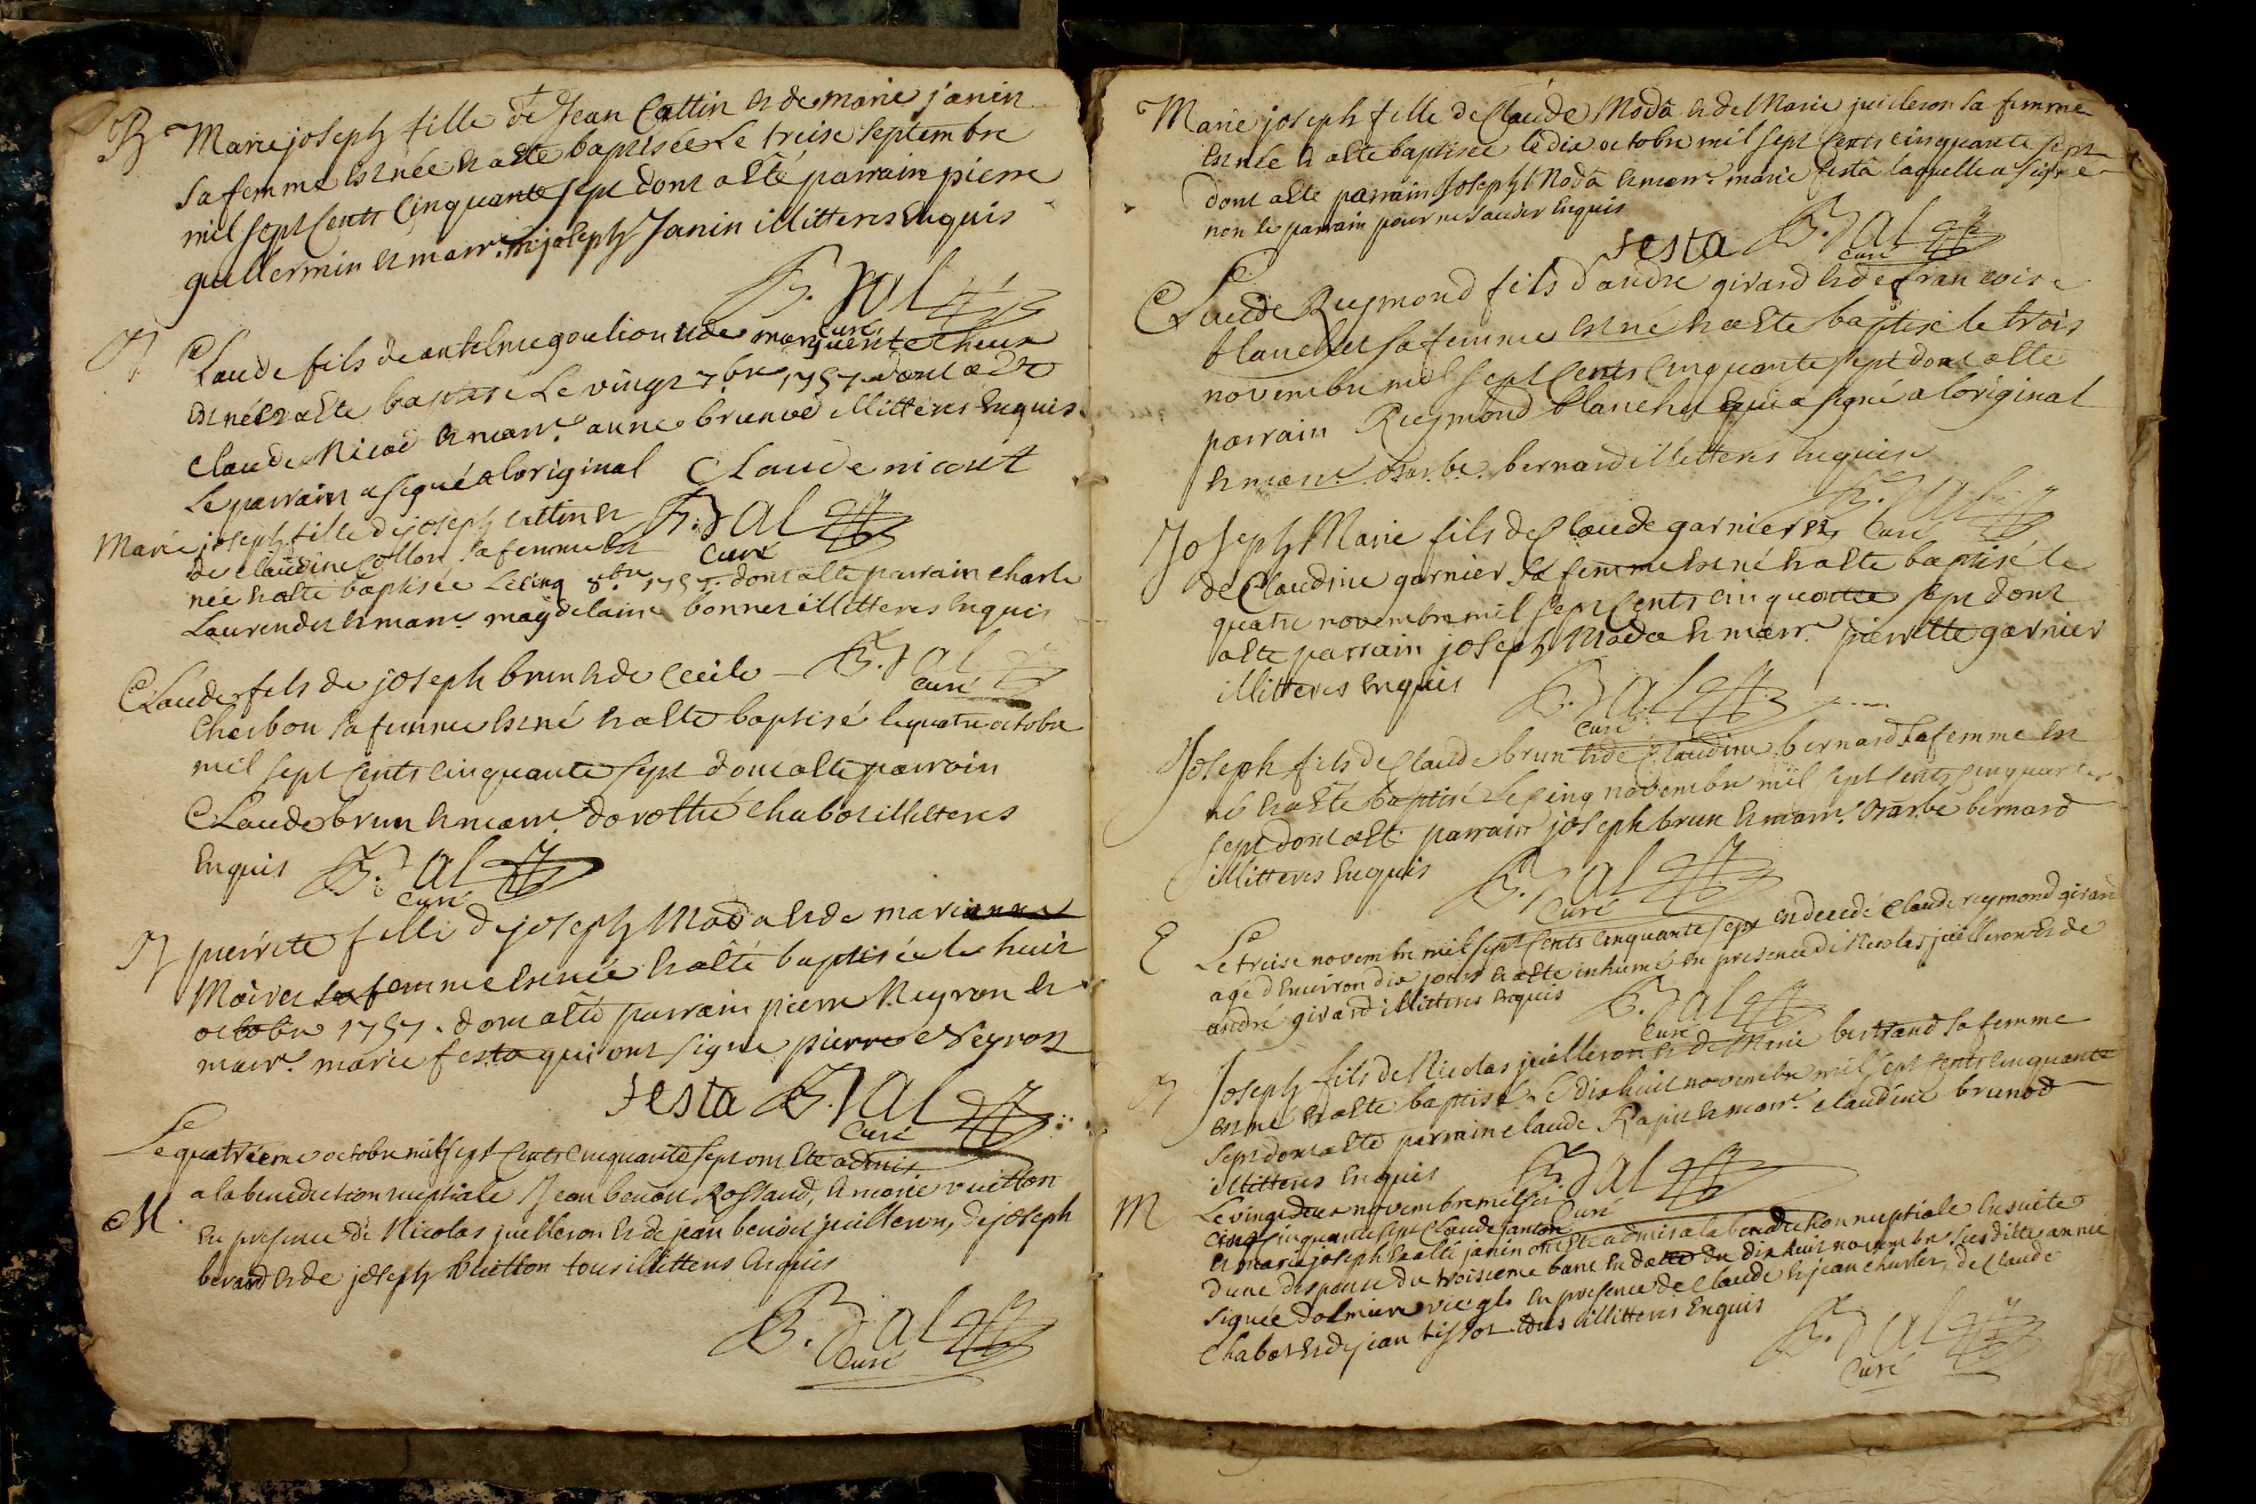 B Marie joseph fille de Jean Cattin et de marie janin
sa femme est née et a esté baptisée le treise septembre
mil sept cents cinquante sept dont a esté parrain pierre
guillermin et marr. m: joseph Janin illitteres enquis
B. Dal
curé
Claude fils de antelme goulion et de marguerite
est né et a esté baptisé Le vingt 7.bre 1757. dont a esté
claude Nicod et marr. anne brunod illitteres enquis
Le parrain a signé a loriginal Claude nicout
B. Dal
curé
Marie joseph fille de joseph cattin et
de claudine Collon sa femme est
née et a esté baptisée Le cinq 8.bre 1757. dont a esté parrain charle
Laurendet et marr. magdelaine bonnet illitteres enquis
B. Dal
curé
Claude fils de joseph brun et de Cecile
Charbou sa femme est né et a esté baptisé le quatre octobre
mil sept cents cinquante sept dont a esté parrain
Claude brun et marr. dorothé chabot illitteres
enquis B. Dal
curé
pierrete fille de joseph Moda et de marie
Moiret sa femme est née et a esté baptisée le huit
octobre 1757. dont a esté parrain pierre Neyron et
marr. marie festa qui ont signé pierre Neyron
festa B. Dal
curé
Le quatrieme octobre mil sept cents cinquante sept ont esté admis
M a la benediction nuptiale Jean benoit Rossand, et marie vuitton
en presence de Nicolas juilleron et de jean benoit juilleron, de joseph
berard et de joseph Vuitton tous illitteres enquis
B. Dal
curé
Marie joseph fille de Claude Moda et de Marie juilleron sa femme
est née et a esté baptisée le dix octobre mil sept cents cinquante sept
dont a esté parrain Joseph Moda et marr. marie festa laquelle a signé
non le parrain pour ne sauoir enquis
festa B. Dal
curé
Claude Reymond fils d'andré girard et de francoise
blanchet sa femme est né et a esté baptisé le trois
novembre mil sept cents cinquante sept dont a esté
parrain Reymond blanchet qui a signé a loriginal
et marr. barbe bernard illitteres enquise
B. Dal
curé
Joseph Marie fils de Claude garnier et
de Claudine garnier sa femme est né et a esté baptisé le
quatre novembre mil sept cents cinquante sept dont
a esté parrain joseph Moda et marr. pierrette garnier
illitteres enquis B. Dal
curé
Joseph fils de Claude brun et de Claudine bernard sa femme est
né et a esté baptisé Le cinq novembre mil sept cents cinquante
sept dont a esté parrain joseph brun et marr. barbe bernard
illitteres enquis B. Dal
curé
Le treise novembre mil sept cents cinquante sept est decedé claude reymond girard
agé d'environ dix jours et a esté inhumé en presence de Nicolas juilleron et de
andré girard illitteres enquis B. Dal
curé
Joseph fils de Nicolas juilleron et de Marie bertrand sa femme
est né et a esté baptisé Le dix huit novembre mil sept cents cinquante
sept dont a esté parrain claude Rapin et marr. claudine brunod
illitteres enquis B. Dal
curé
M Le vingt deux novembre mil sept
cents cinquante sept Claude janton
et marie joseph janin ont esté admis a la benediction nuptiale ensuite
d'une dispense du troisieme banc en datte du dix huit novembre susditte année
signée dolmiere vic gl en presence de Claude et jean charles, de Claude
Chabot et de jean tissot tous illitteres enquis
B. Dal
curé